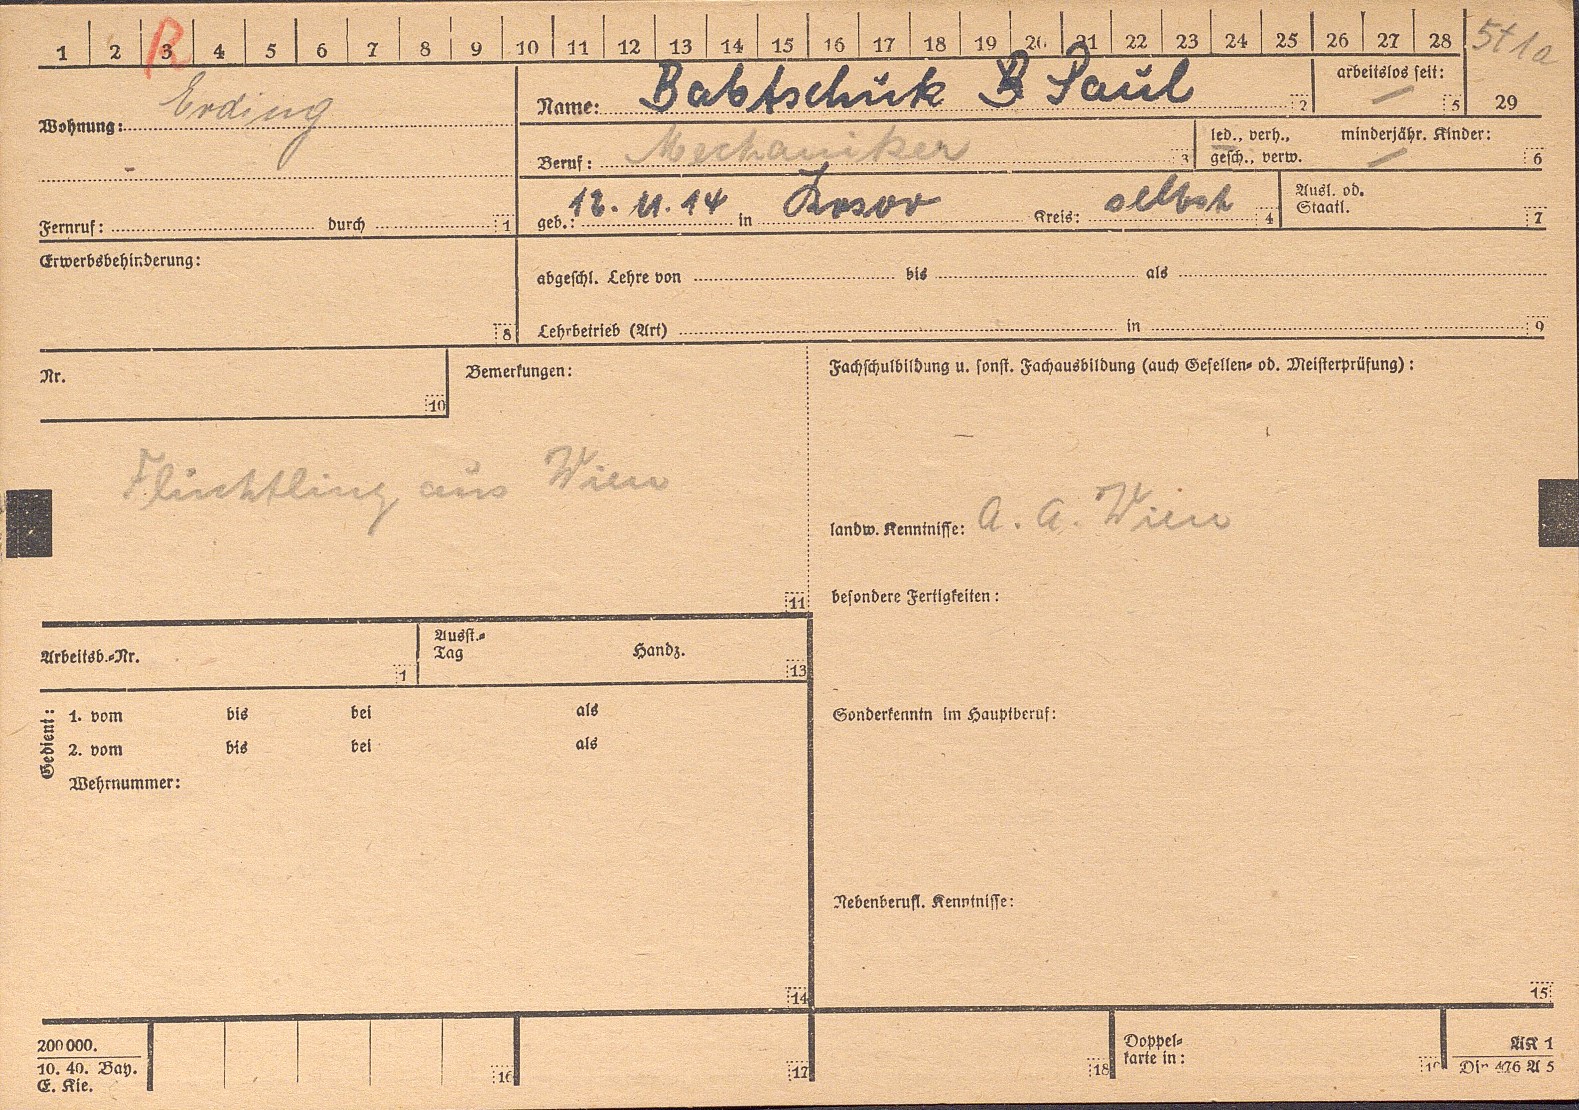 1 2 3 4 5 6 7 8 9 10 11 12 13 14 15 16 17 18 19 20 21 22 23 24 25 26 27 28
R
5t 1a
Wohnung: Erding
Name: Babtschuk Paul 2
arbeitslos seit: 5
29
Beruf: Mechaniker 3
led., verh.,
gesch., verw.
minderjähr. Kinder: 6
Fernruf: durch 1
geb.: 12. 11. 14 in Kosov Kreis: selbst 4
Ausl. od.
Staatl. 7
Erwerbsbehinderung: 8
abgeschl. Lehre von bis als
Lehrbetrieb (Art) in 9
Nr. 10
Bemerkungen:
Flüchtling aus Wien
11
Fachschulbildung u. sonst. Fachausbildung (auch Gesellen- od. Meisterprüfung):
landw. Kenntnisse: A. A. Wien
besondere Fertigkeiten:
Arbeitsb.-Nr. 1
Ausst.-
Tag Handz. 13
Gedient:
1. vom bis bei als
2. vom bis bei als
Wehrnummer:
14
Sonderkenntn im Hauptberuf:
Nebenberufl. Kenntnisse:
15
200 000.
10. 40. Bay.
E. Kie.
16
17
18
Doppel-
karte in:
AK 1
Din 476 A 5